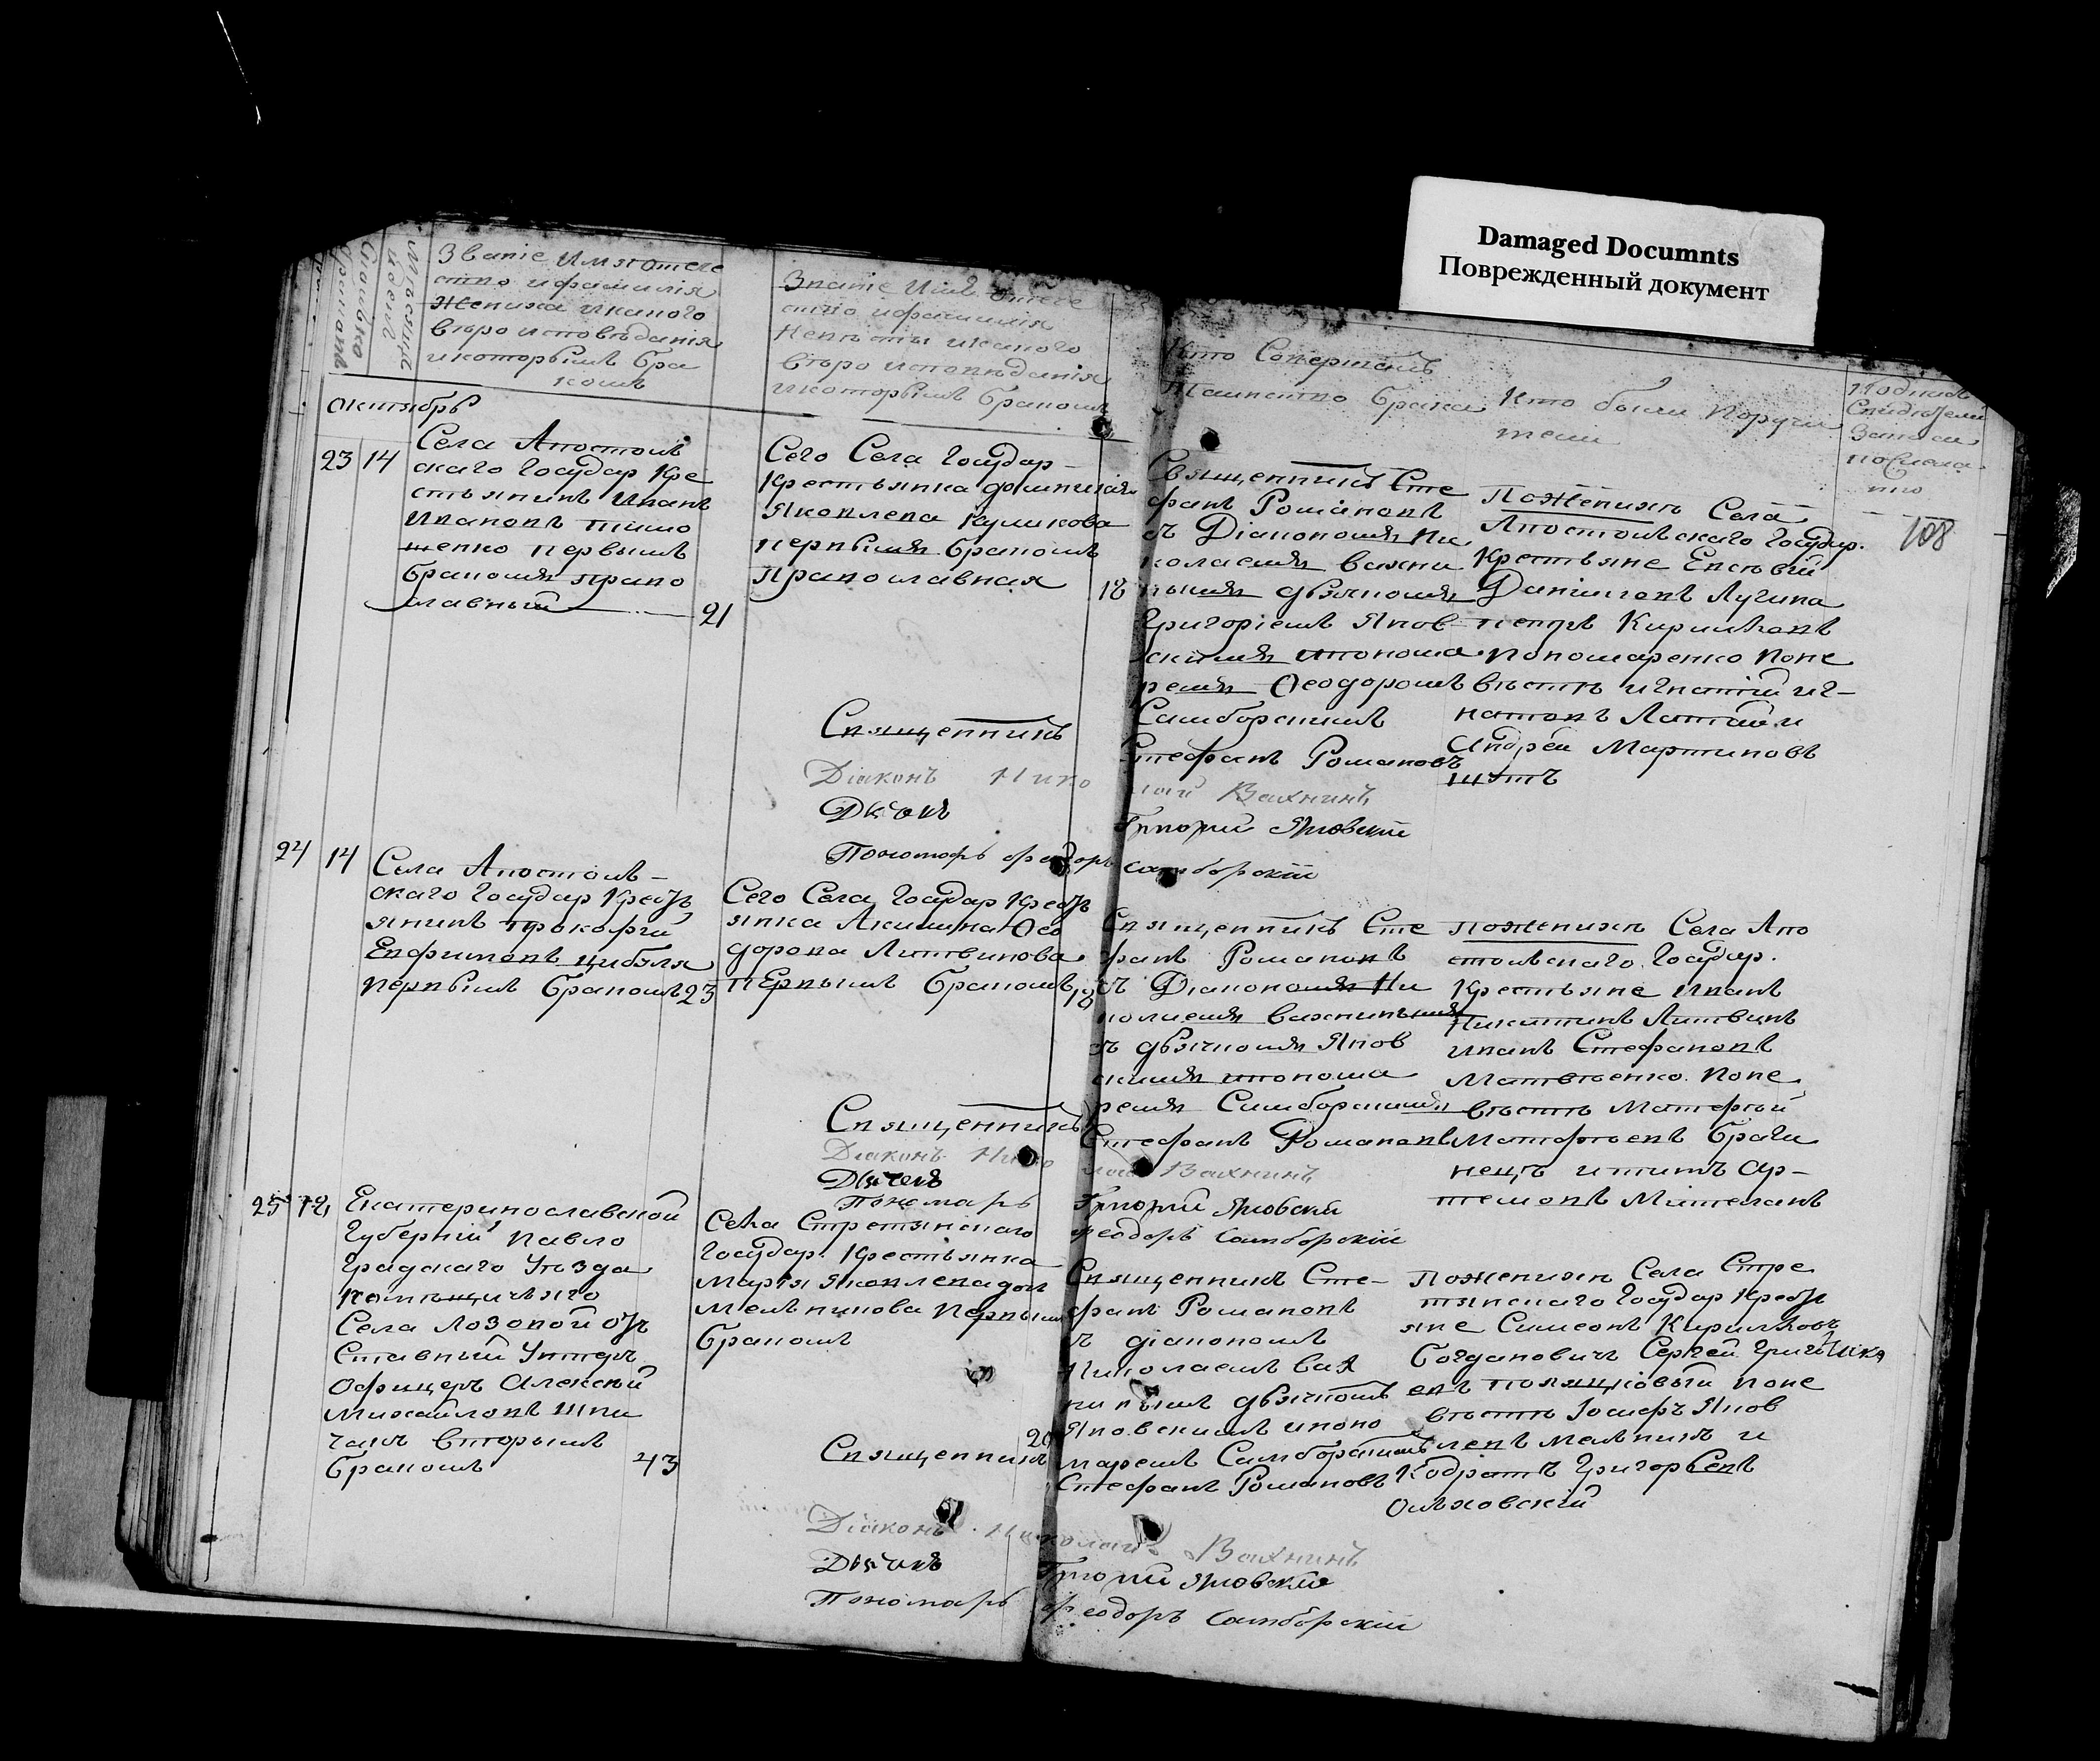 Damaged Documnts
Поврежденный документ
Званіе Имя отече
ство и фамилія
Жениха и какого
вѣро исповѣданія
и которымъ бра
комъ
Званіе Имя отече
ство и фамилія
Невѣсты и какого
вѣро исповѣданія
и которымъ бракомъ
Кто Совершалъ
Таинство брака
Кто были Поручи
тели
108
октябрь
23 14
Села Апостоль
скаго Государ Кре
стьянинъ Иванъ
Ивановъ Тимо
шенко первымъ
бракомъ право
славный
21
Сего Села Государ
Крестьянка
Яковлева Куликова
первымъ бракомъ
Православная
18
Священникъ Сте
фанъ Романовъ
съ Діакономъ Ни
колаемъ Вахни
нымъ дьячкомъ
Григоріемъ Янов
скимъ и понома
ремъ Ѳеодоромъ
Самборскимъ
По женихѣ Села
Апостольскаго Государ.
Крестьяне Евсевій
Даниловъ Лучина
Петръ Кириловъ
Пономаренко по не
вѣстѣ Игнатій Иг
натовъ и
Андрей Мартиновъ
Священникъ Стефанъ Романовъ
Діаконъ Николай Вахнинъ
Дьячокъ Григорій Яновскій
Пономарь Феодоръ Самборскій
24 14
Села Апостоль
скаго Государ Кресть
янинъ Прокофій
Евфимовъ Цибуля
первымъ бракомъ 23
Сего Села Государ Кресть
янка Акилина Ѳео
дорова Литвинова
первымъ бракомъ 18
Священникъ Сте
фанъ Романовъ
съ Діакономъ Ни
колаемъ Вахнинымъ
съ дьячкомъ Янов
скимъ и понома
ремъ Самборскимъ
По женихѣ Села Апо
стольскаго Государ.
Крестьяне Иванъ
Никитинъ Литвинъ
Иванъ Стефановъ
Матвѣенко по не
вѣстѣ Матфѣй
Матфѣевъ Браги
нецъ и Титъ Ар
темовъ
Священникъ Стефанъ Романовъ
Діаконъ Николай Вахнинъ
Дьячекъ Григорій Яновскій
Пономарь Феодоръ Самборскій
25
Екатеринославской
Губерніи Павло
градскаго Уѣзда
помѣщичьяго
Села Лозовой От
ставный Унтеръ
Офицеръ Алексѣй
Михайловъ Шпи
чакъ вторымъ
бракомъ 43
Села Стретинскаго
Государ. Крестьянка
Марѳа Яковлева дочь
Мельникова первымъ
бракомъ
20
Священникъ Сте
фанъ Романовъ
съ діакономъ
Николаемъ Вах
нинымъ дьячкомъ
Яновскимъ и поно
маремъ Самборскимъ
По женихѣ Села Стре
тинскаго Государ Кресть
яне Симеонъ Кириловъ
Богдановичъ Сергѣй Григорь
евъ по не
вѣстѣ Іосифъ Яков
левъ Мельникъ и
Кодратъ Григорьевъ
Ольховскій
Священникъ Стефанъ Романовъ
Діаконъ Николай Вахнинъ
Дьячекъ Григорій Яновскій
Пономарь Феодоръ Самборскій